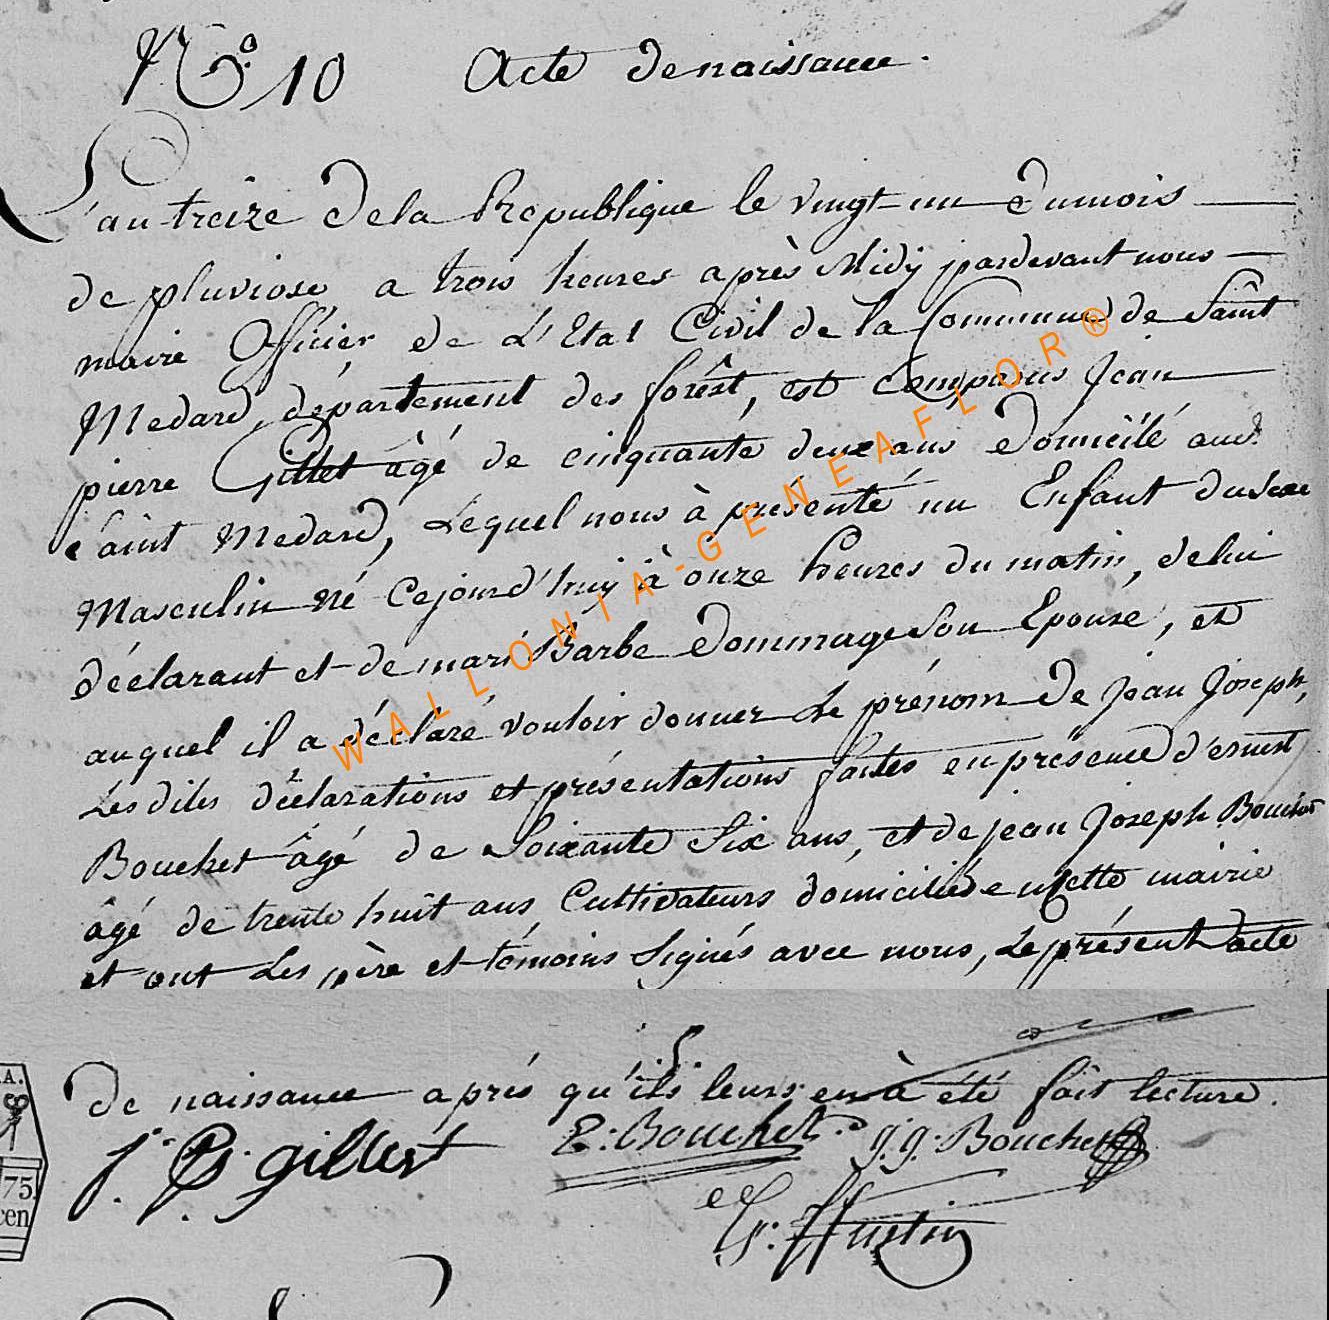 N.º 10 Acte de naissance.
L'an treize de la Republique le vingt un du mois
de pluviose, a trois heures après Midÿ pardevant nous
maire Officier de L'Etat Civil de la Commune de Saînt
Medard, département des forêst, est comparus Jean
pierre Gillet âgé de cinquante deux ans domicilé aud.
Saint Medard, Lequel nous à présenté un Enfant du sexe
Masculin né Cejourd'huy à onze heures du matin, de lui
déclarant et de mari Barbe Dommage Son Epouse, et
auquel il a déclaré vouloir donner Le prénom de Jean Joseph,
Les dites déclarations et présentations faites en présence d'ernest
Bouchet âgé de Soixante Six ans, et de jean Joseph Bouchet
âgé de trente huit ans Cultivateurs domiciliés de cette mairie
et ont Les père et témoins Signés avec nous, Le présent acte
de naissance aprés qu'ils leurs en à été fait lecture.
J. P. gillet E: Bouchet J. J. Bouchet
Hustin
WALLONIA-GENEAFLOR®
A.
75.
cen